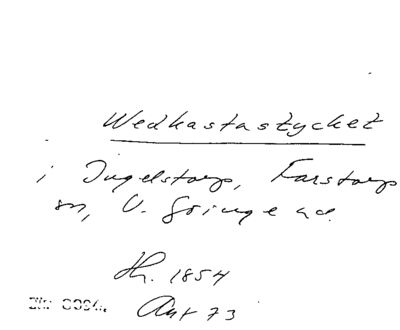 Wedkastastycket
i Ingelstorp, Farstorp
sn, V. Göinge hd.
Th. 1854
Ant 73